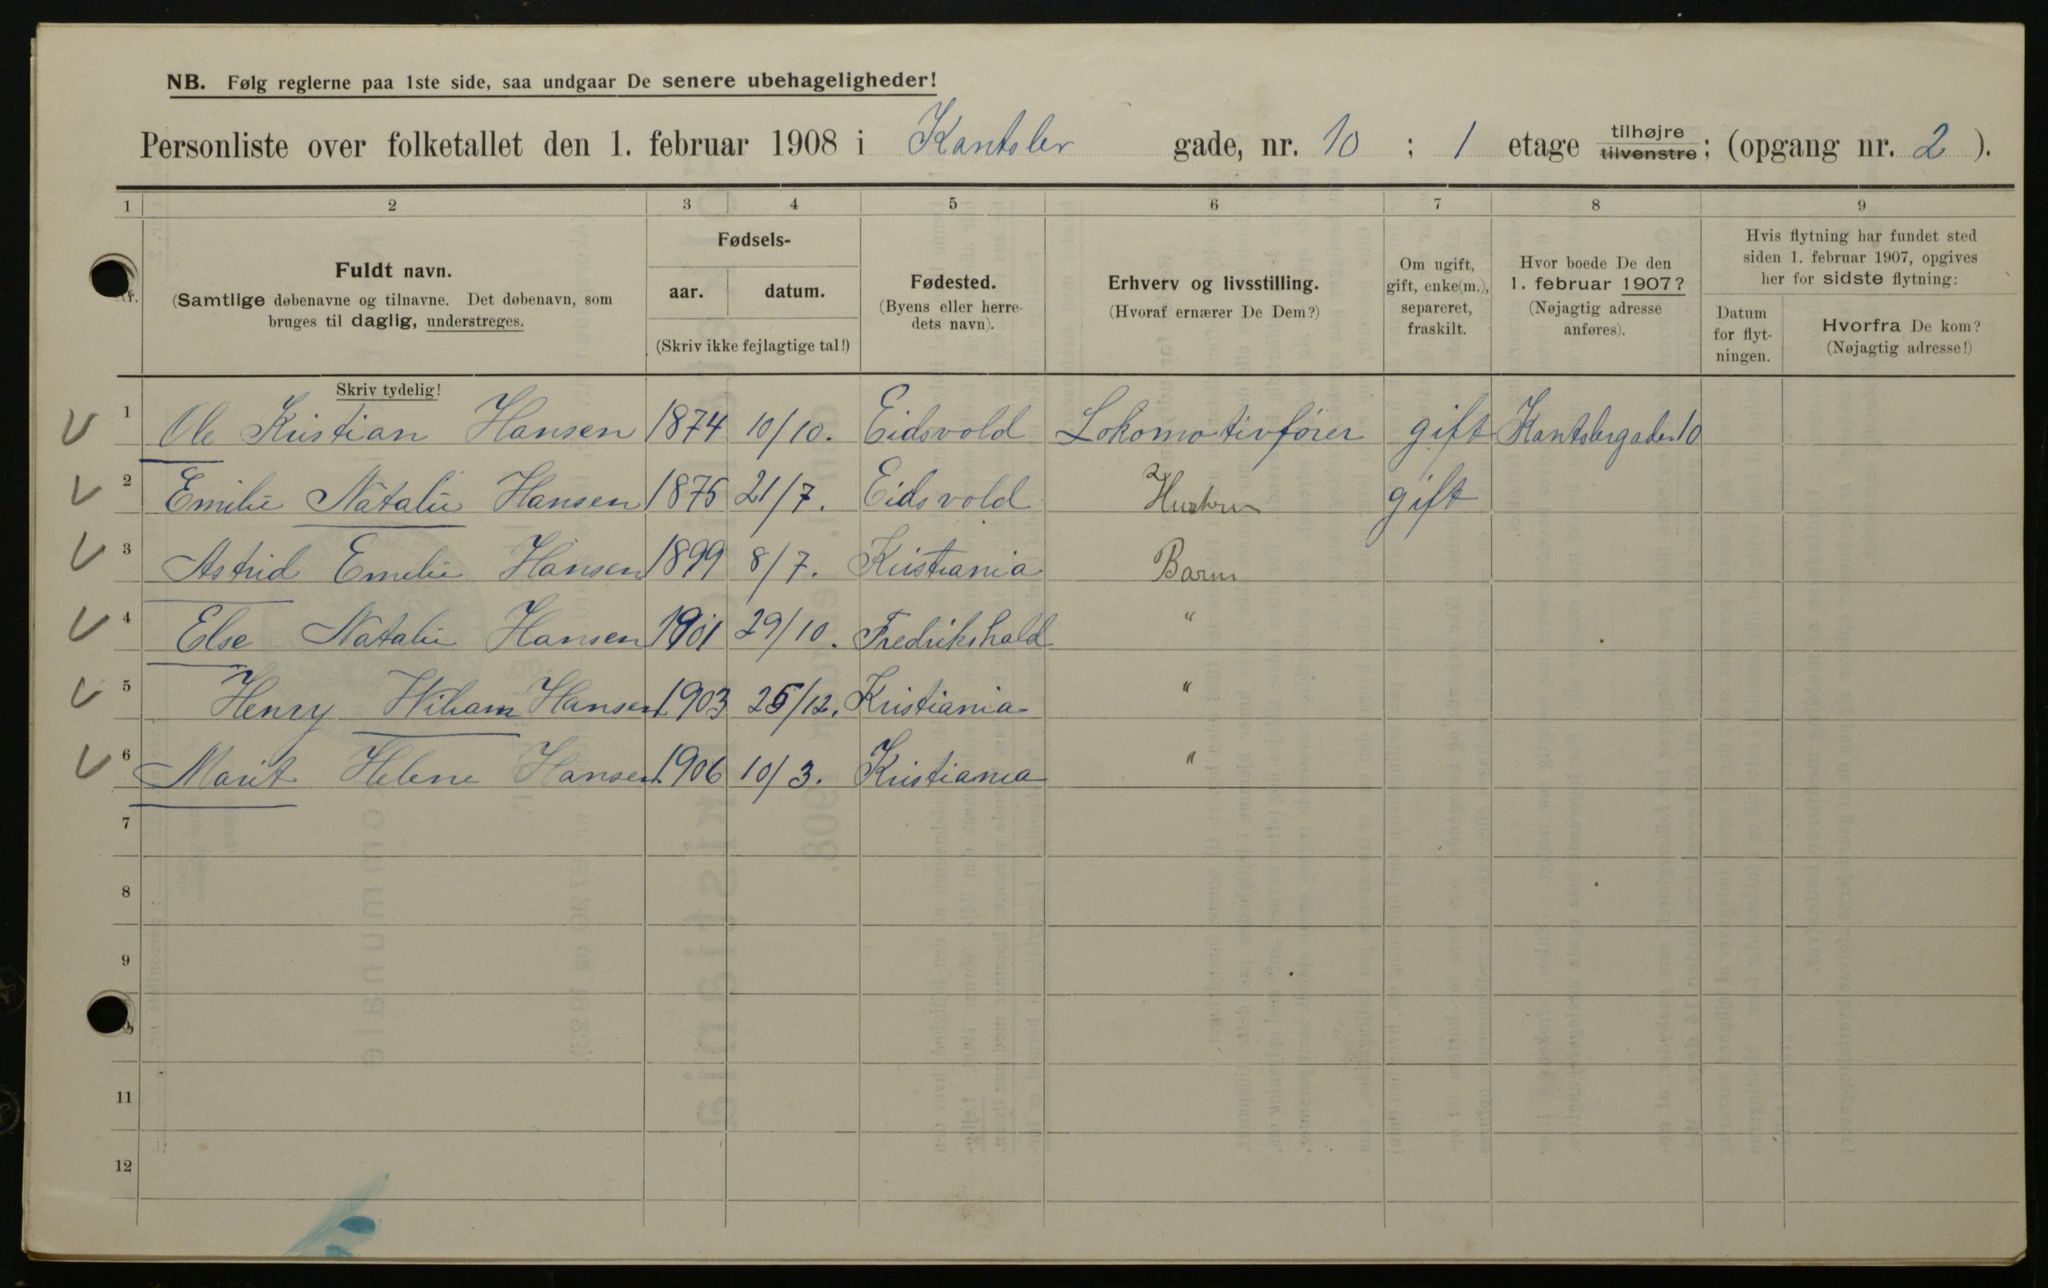 NB. Følg reglerne paa 1ste side, saa undgaar De senere ubehageligheder!
Personliste over folketallet den 1. februar 1908 i Kantsler gade, nr. 10 ; 1 etage tilhøjre tilvenstre; (opgang nr. 2 ).
1 2 3 4 5 6 7 8 9
Nr.
Fuldt navn.
(Samtlige døbenavne og tilnavne. Det døbenavn, som
bruges til daglig, understreges.
Fødsels-
aar. datum.
(Skriv ikke fejlagtige tal!)
Fødested.
(Byens eller herre-
dets navn).
Erhverv og livsstilling.
(Hvoraf ernærer De Dem?)
Om ugift,
gift, enke(m.),
separeret,
fraskilt.
Hvor boede De den
1. februar 1907?
(Nøjagtig adresse
anføres).
Hvis flytning har fundet sted
siden 1. februar 1907, opgives
her for sidste flytning:
Datum
for flyt-
ningen.
Hvorfra De kom?
(Nøjagtig adresse!)
Skriv tydelig!
1 Ole Kristian Hansen 1874 10/10. Eidsvold Lokomotivfører gift Kantslergaden 10
2 Emilie Natalie Hansen 1875 21/7. Eidsvold Hustru gift
3 Astrid Emelie Hansen 1899 8/7. Kristiania Barn
4 Else Natalie Hansen 1901 29/10. Fredrikshald "
5 Henry Wiliam Hansen 1903 25/12. Kristiania "
6 Marit Helene Hansen 1906 10/3. Kristiania "
7
8
9
11
12